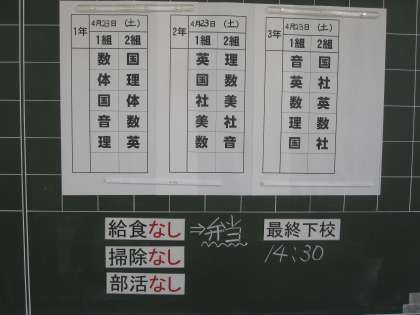 1年 4月23日 (土)
1組 2組
数 国
体 理
国 体
音 数
理 英
2年 4月23日 (土)
1組 2組
英 理
国 数
社 美
美 社
数 音
3年 4月23日 (土)
1組 2組
音 国
英 社
数 英
理 数
国 社
給食なし ⇒弁当 最終下校
掃除なし 14:30
部活なし